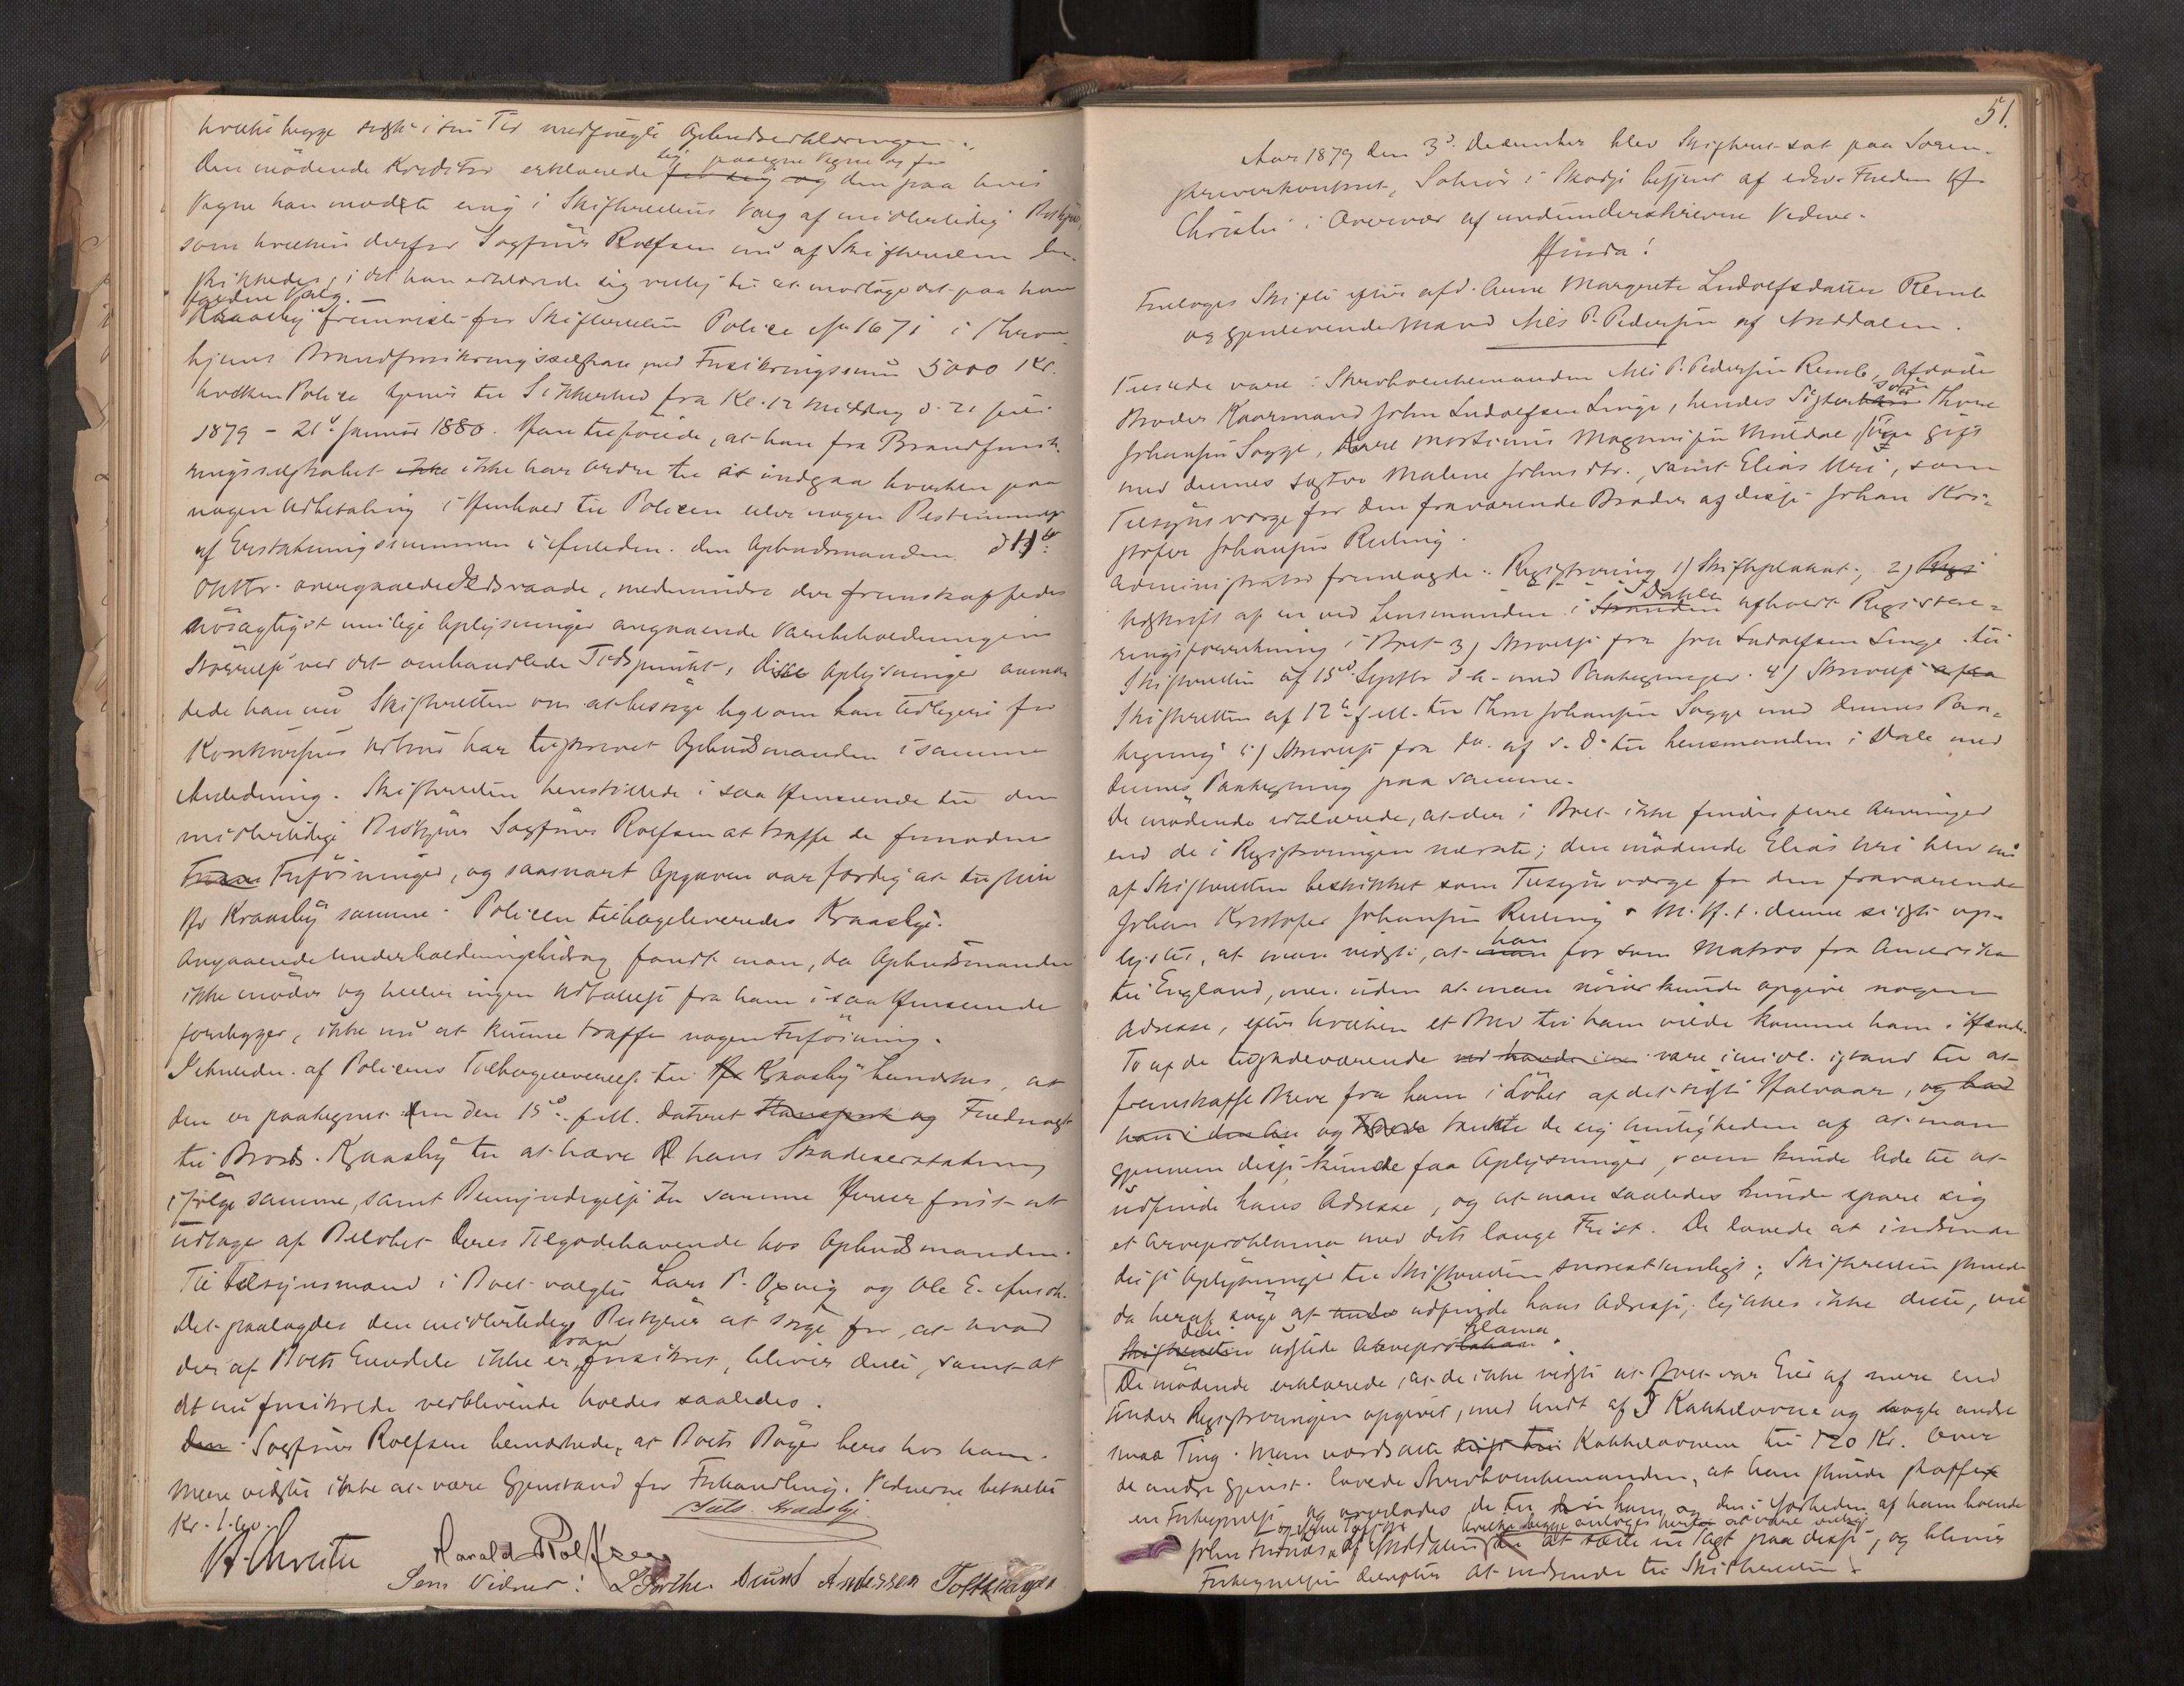 hvilke begge sidste i sin Tid medfulgte Opbudserklæringen.
Den mödende Kreditor erklærede for sig og sig paa egne Vegne og for den paa hvis
Vegne han mödte enig i Skifterettens Valg af midlertidig Bestyrer,
som hvilken derfor Sagförer Rolfsen nu af Skifteretten be-
skikkedes, i det han erklærede sig villig til at modtage det paa ham
faldne Valg.
Kraasby fremviste for Skifteretten Police No 1671 i Thron-
hjems Brandforsikringsselskab med Forsikringssum 5000 Kr.
hvilken Police tjener til Sikkerhed fra Kl. 12 Middag d. 21 Juli
1879 - 21 Januar 1880. Han tilföiede, at han fra Brandforsik-
ringsselskabet ikke ikke har Ordre til at indgaa hverken paa
nogen Udbetaling i Henhold til Policen eller nogen Bestemmelse
af Erstatningssummen i Anledn. den Opbudsmanden d. 11te
Oktbr. overgaaede Ildsvaade, medmindre der fremskaffedes
nöiagtigst mulige Oplysninger angaaende Varebeholdningens
Störrelse ved det omhandlede Tidspunkt, disse Oplysninger anmo-
dede han nu Skifteretten om at besörge ligesom han tidligere for
Konkursens Udbrud har tilskrevet Opbudsmanden i samme
Anledning. Skifteretten henstillede i saa Henseende til den
midlertidige Bestyrer Sagförer Rolfsen at træffe de fornödne
Foran Forföininger, og saasnart Opgaven var færdig at tilstille
Hr Kraasby samme. Policen tilbageleveredes Kraasby.
Angaaende Underholdningsbidrag fandt man, da Opbudsmanden
ikke möder og heller ingen Udtalelse fra ham i saa Henseende
foreligger, ikke nu at kunne træffe nogen Forföining.
I Anledn. af Policens Tilbagelevering til Hr Kraasby bemærkes, at
den er paategnet en den 15de f.M. dateret Transport og Fuldmagt
til Brods. Kraasby til at hæve hans Skadeserstatning
ifölge samme, samt Bemyndigelse til samme Herrer först at
udtage af Belöbet deres Tilgodehavende hos Opbudsmanden.
Til Tilsynsmænd i Boet valgtes Lars P. Oxvig og Ole E.
Det paalagdes den midlertidige Bestyrer at sörge for, at hvad
der af Boets Eiendele ikke er brand forsikret, bliver dette, samt at
det nu forsikrede vedblivende holdes saaledes.
Den Sagförer Rolfsen bemærkede, at Boets Böger bero hos ham.
Mere vidstes ikke at være Gjenstand for Forhandling. Vidnerne betaltes
Kr. 1.60. Juls. Kraasby
H. Christie Harald Rolfsen
Som Vidner: Knud Andersen
51.
Aar 1879 den 3d December blev Skifteret sat paa Soren-
skriverkontoret, Solnör i Skodje betjent af edsv. Fuldm. H
Christie i Overvær af medunderskrevne Vidner.
Hvorda!
Foretoges Skifte efter afd. Anne Margrete Ludolfsdatter Remb
og gjenlevende Mand Nils P. Pedersen af Muldalen.
Tilstede vare: Sterbboenkemanden Nils P. Pedersen Remb, Afdödes
Broder Kaarmand John Ludolfsen Linge, hendes Sösterbarn sön Thore
Johansen Sogge, Arne Martinus Magnussen Muldal gift
med dennes Söster Malene Johnsdtr. samt Elias Uri, som
Tilsynsværge for den fraværende Broder af disse Johan Kri-
stofer Johansen Rieling.
Administrator fremlagde: Registrering 1) Skifteplakat; 2) Regi
Udskrift af en ved Lensmanden i Stranden Dahle afholdt Registre-
ringsforretning i Boet 3) Skrivelse fra John Ludolfsen Linge til
Skifteretten af 15de Septbr d. A. med Paategninger. 4) Skrivelse fra
Skifteretten af 12te f.M. til Thore Johansen Sogge med dennes Paa-
tegning 5) Skrivelse fra do. af s. D. til Lensmanden i Dale med
dennes Paategning paa samme.
De mödende erklærede, at der i Boet ikke findes flere Arvinger
end de i Registreringen nævnte; den mödende Elias Uri blev nu
af Skifteretten beskikket som Tilsynsværge for den fraværende
Johan Kristofer Johansen Rieling. M.H.t. denne sidste op-
lystes, at man vidste, at man han for som Matros fra Amerika
til England, men uden at man nöiere kunde opgive nogen
Adresse, efter hvilken et Brev til ham vilde komme ham i Hænde.
To af de tilstedeværende vare imidl. istand til at
fremskaffe Breve fra ham i Löbet af det sidste Halvaar, og
og tænkte de sig Muligheden af at man
gjennem disse kunde faa Oplysninger, som kunde lede til at
udfinde hans Adresse, og at man saaledes kunde spare sig
et Arveproklama med dets lange Frist. De lovede at indsende
disse Oplysninger til Skifteretten snarest muligt; Skifteretten skulde
da heraf söge at udfinde hans Adresse; lykkes ikke dette, vil
Skifteretten den udstede Arveproklama.
De mödende erklærede, at de ikke vidste at Boet var Eier af mere end
under Registreringen opgivet, med Undt. af 3 Kakkelovne og nogle andre
smaa Ting. Man værdsatte Kakkelovnene til 120 Kr. Over
de andre Gjenst. lovede Sterbboenkemanden, at han skulde skaffe
en Fortegnelse og overlodes det til ham og den i Nærheden af ham boende
John af Muldalen hvilke begge antoges hertil at være villige at sætte en Taxt paa disse, og bliver
Fortegnelsen derefter at indsende til Skifteretten.